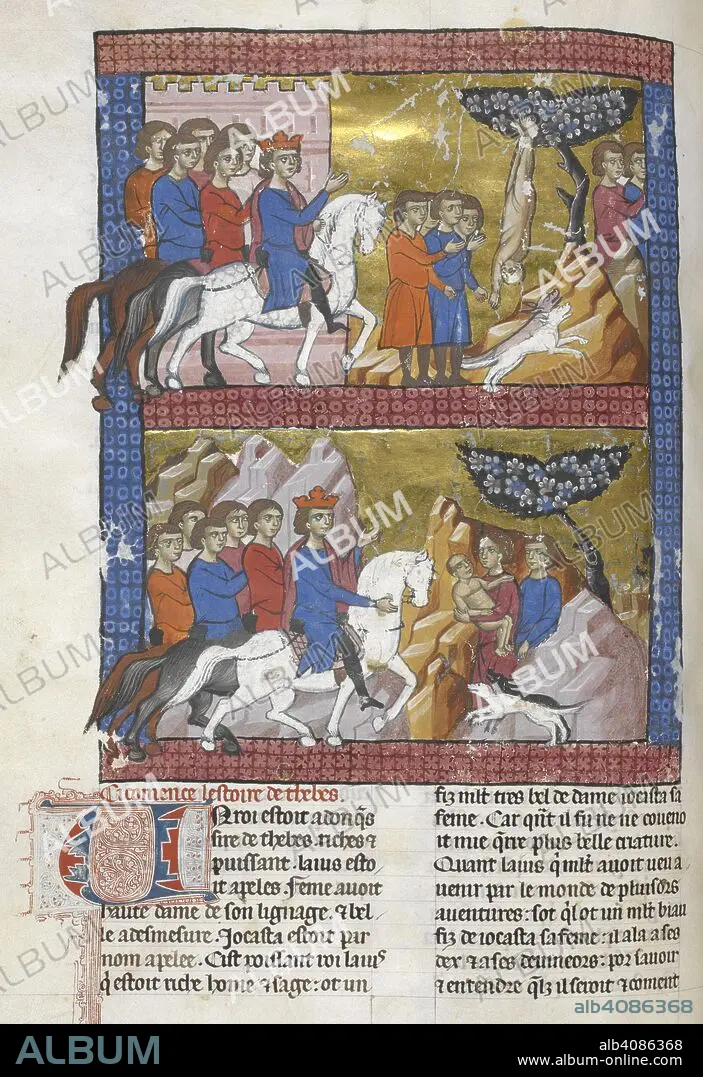 Ci comence lestoire de thebes.
Un roi estoit adonq̃s
sire de thebes. riches ⁊
puissant. laius esto
it apeles. Feme auoit
haute dame de son lignage. ⁊ bel
le adesmesure. Jocasta estoit par
nom apelee. Cist poissant roi laiuˢ
q̃ estoit riche home ⁊ sage: ot un
fiz mlt tres bel de dame iocasta sa
feme. Car qñt il fu ne ne coueno
it mie q̃rre plus belle criature.
Quant laius q̃ mlt auoit ueu a
uenir par le monde de plusors
auentures: sot ql ot un mlt biau
fiz de iocasta sa feme: il ala a ses
dex ⁊ a ses deuineors: por sauoir
⁊ entendre qlz il seroit ⁊ coment
alb4086368
ALBUM
alb4086368
www.album-online.com